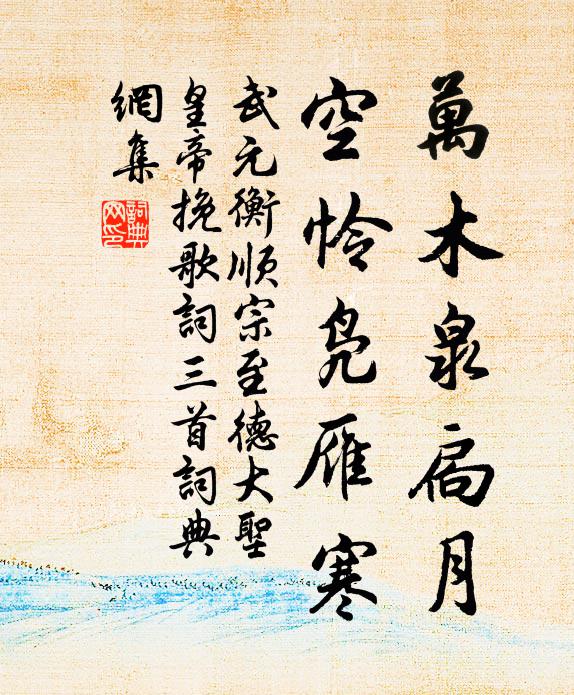 萬木泉扃月
空怜凫雁寒
武元衡顺宗至德大聖
皇帝挽歌詞三首詞典
網集
詞典网印